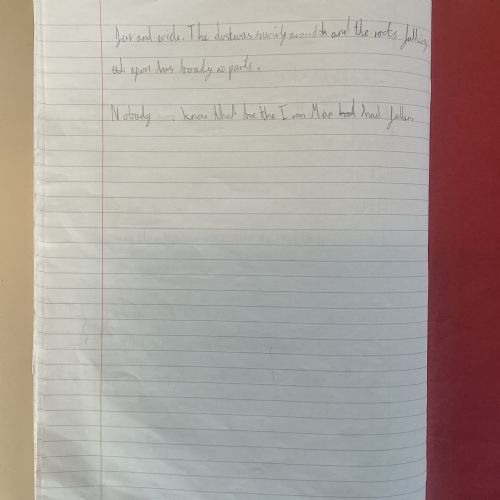 far and wide. The dust was swirling around th and the rocks falling
upon his body parts.
Nobody knew that the Iron Man had fallen.